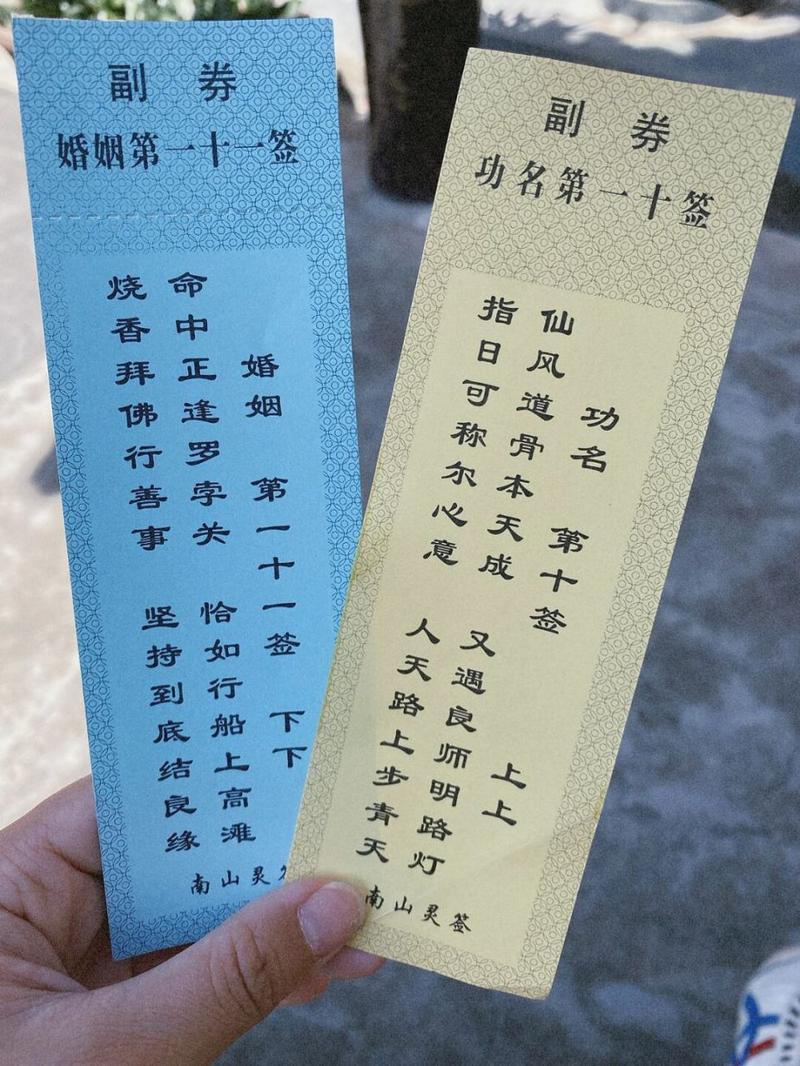 副 券
婚姻第一十一签
婚姻 第一十一签 下下
命中正逢罗孛关 恰如行船上高滩
烧香拜佛行善事 坚持到底结良缘
南山灵
副 券
功名第一十签
功名 第十签 上上
仙风道骨本天成 又遇良师明路灯
指日可称尔心意 人天路上步青天
南山灵签